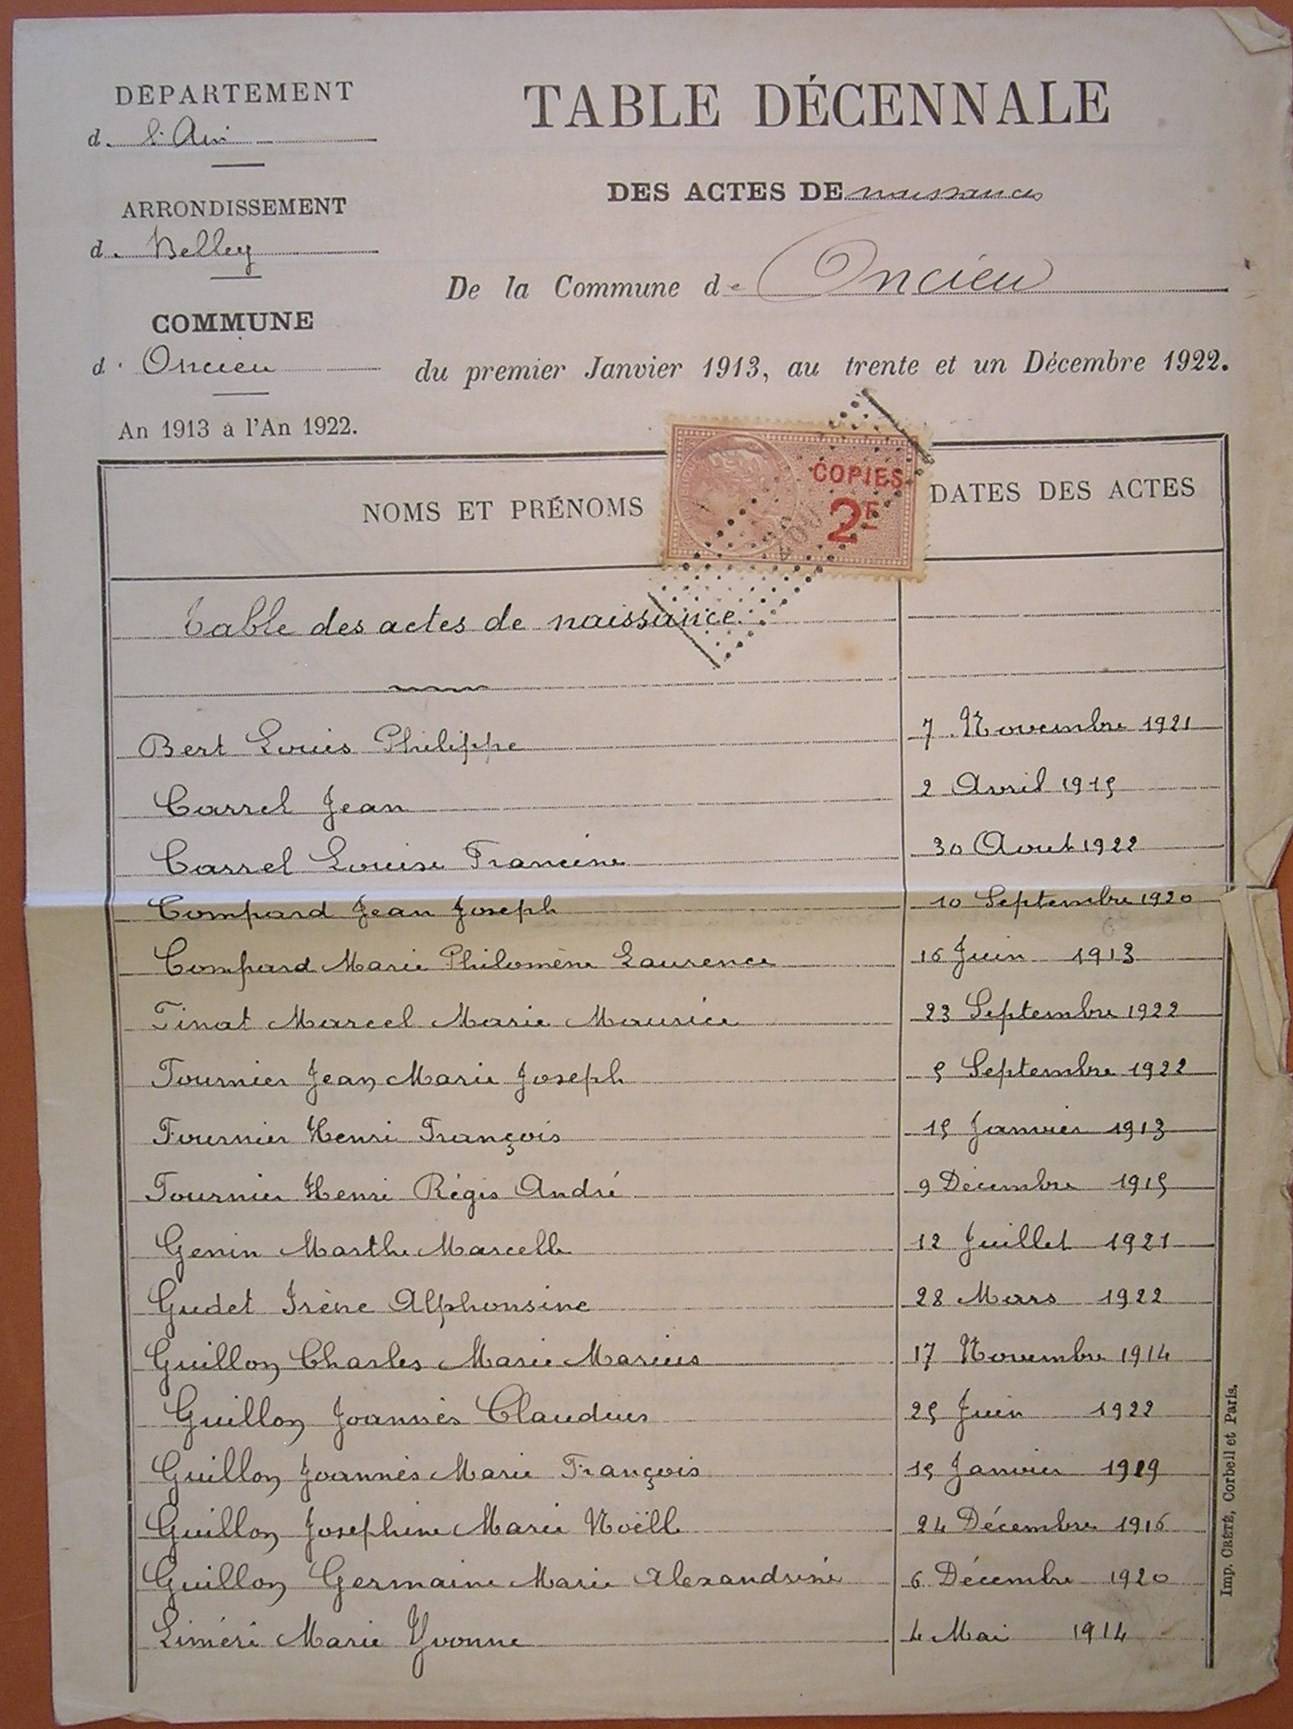 DEPARTEMENT
d. l'Ain
ARRONDISSEMENT
d. Belley
COMMUNE
d. Oncieu
An 1913 à l'An 1922.
TABLE DÉCENNALE
DES ACTES DE naissances
De la Commune de Oncieu
du premier Janvier 1913, au trente et un Décembre 1922.
NOMS ET PRÉNOMS
COPIES
2F
DATES DES ACTES
Table des actes de naissance.
Bert Louis Philippe 7 Novembre 1921
Carrel Jean 2 Avril 1915
Carrel Louise Francine 30 Aout 1922
Compard Jean Joseph 10 Septembre 1920
Compard Marie Philomène Laurence 16 Juin 1913
Finat Marcel Marie Maurice 23 Septembre 1922
Fournier Jean Marie Joseph 5 Septembre 1922
Fournier Henri François 15 Janvier 1913
Fournier Henri Régis André 9 Décembre 1915
Genin Marthe Marcelle 12 Juillet 1921
Gudet Irène Alphonsine 28 Mars 1922
Guillon Charles Marie Marius 17 Novembre 1914
Guillon Joannès Claudius 25 Juin 1922
Guillon Joannès Marie François 15 Janvier
Guillon Josephine Marie Noëlle 24 Décembre 1916
Guillon Germaine Marie Alexandrine 6 Décembre 1920
Liméri Marie Yvonne 4 Mai 1914
Imp. CRÉTÉ, Corbeil et Paris.